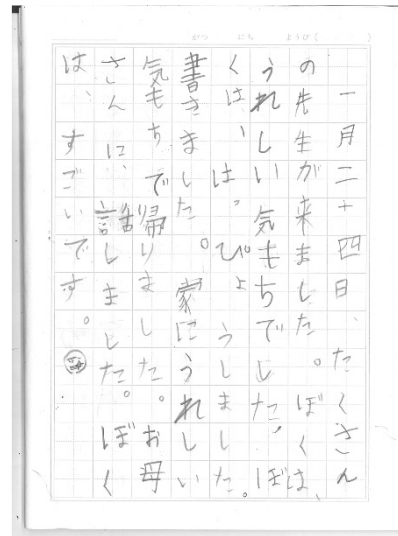 がつ にち ようび( )
一月二十四日、たくさん
の先生が来ました。ぼくは、
うれしい気もちでした。ぼ
くは、は。ぴょうしました。
書きました。家にうれしい
気もちで帰りました。お母
さんに、話しました。ぼく
は、すごいです。